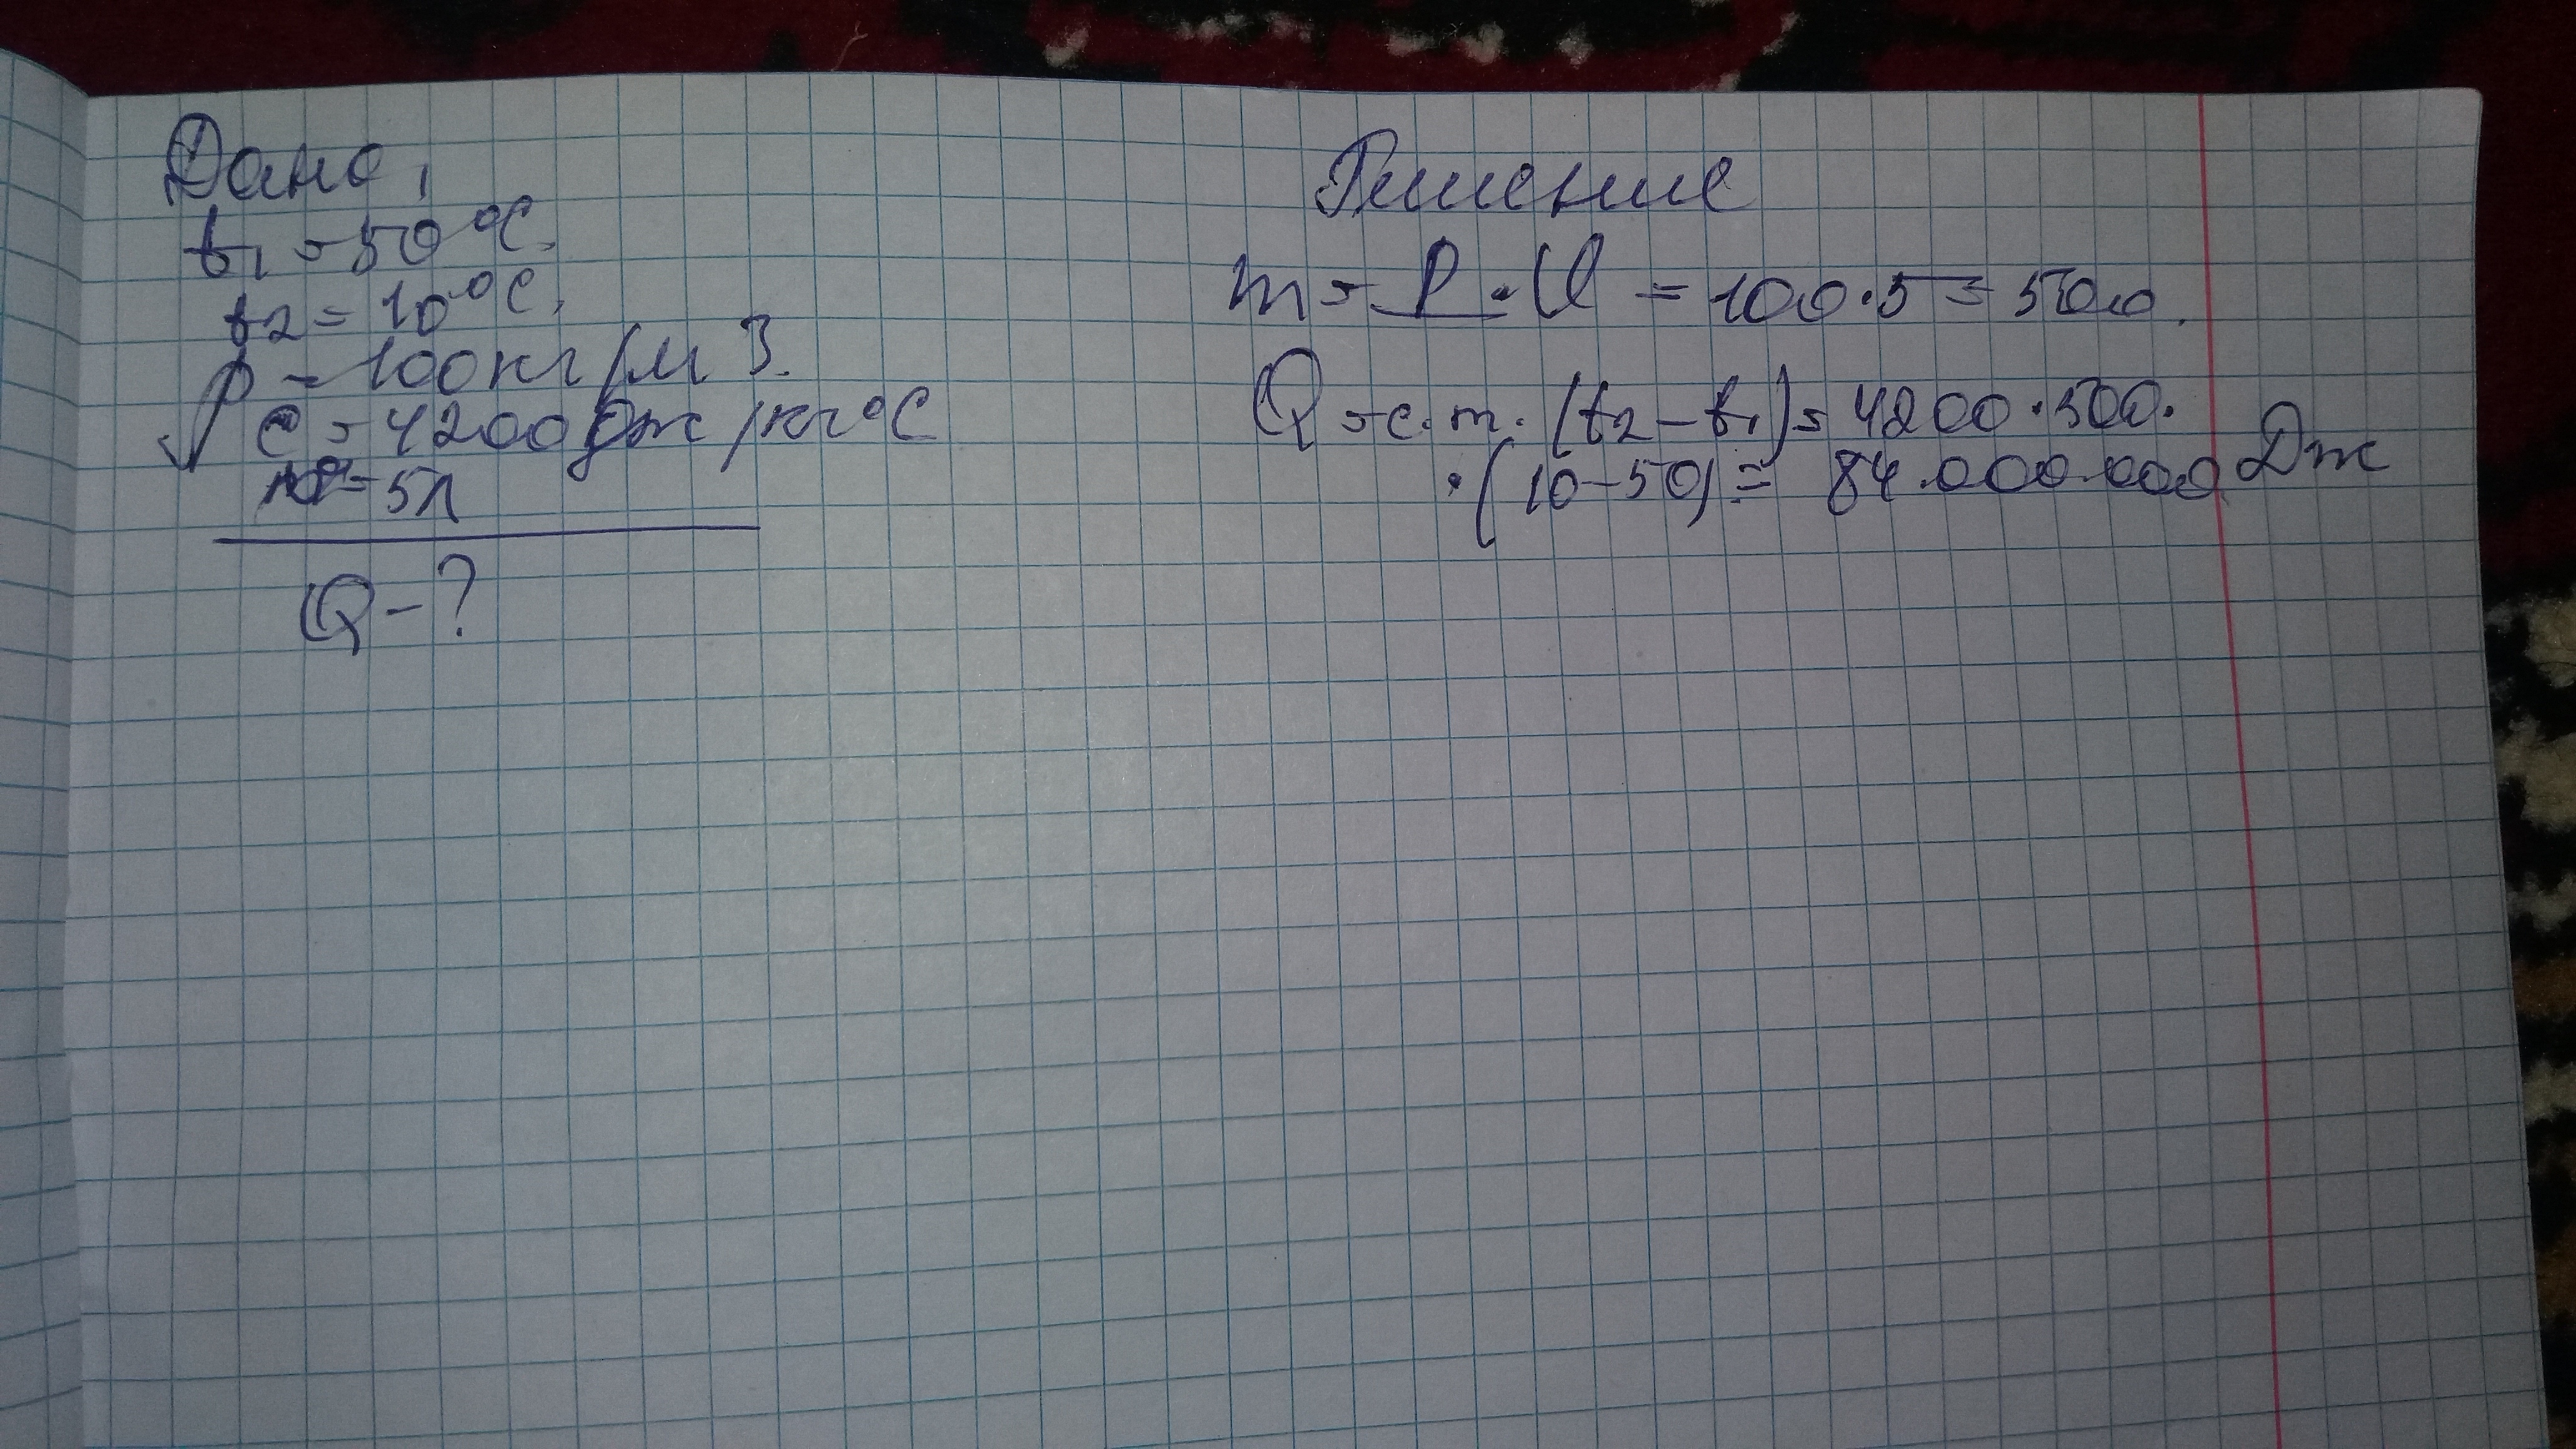 Дано,
t1 = 50 °C.
t2 = 10 °C.
ρ = 100 кг/м3.
c = 4200 Дж/кг°C
= 5л
Q - ?
Решение
m = ρ · V = 100 · 5 = 500.
Q = c · m · (t2 - t1) = 4200 · 500 ·
· (10 - 50) = 84.000.000 Дж